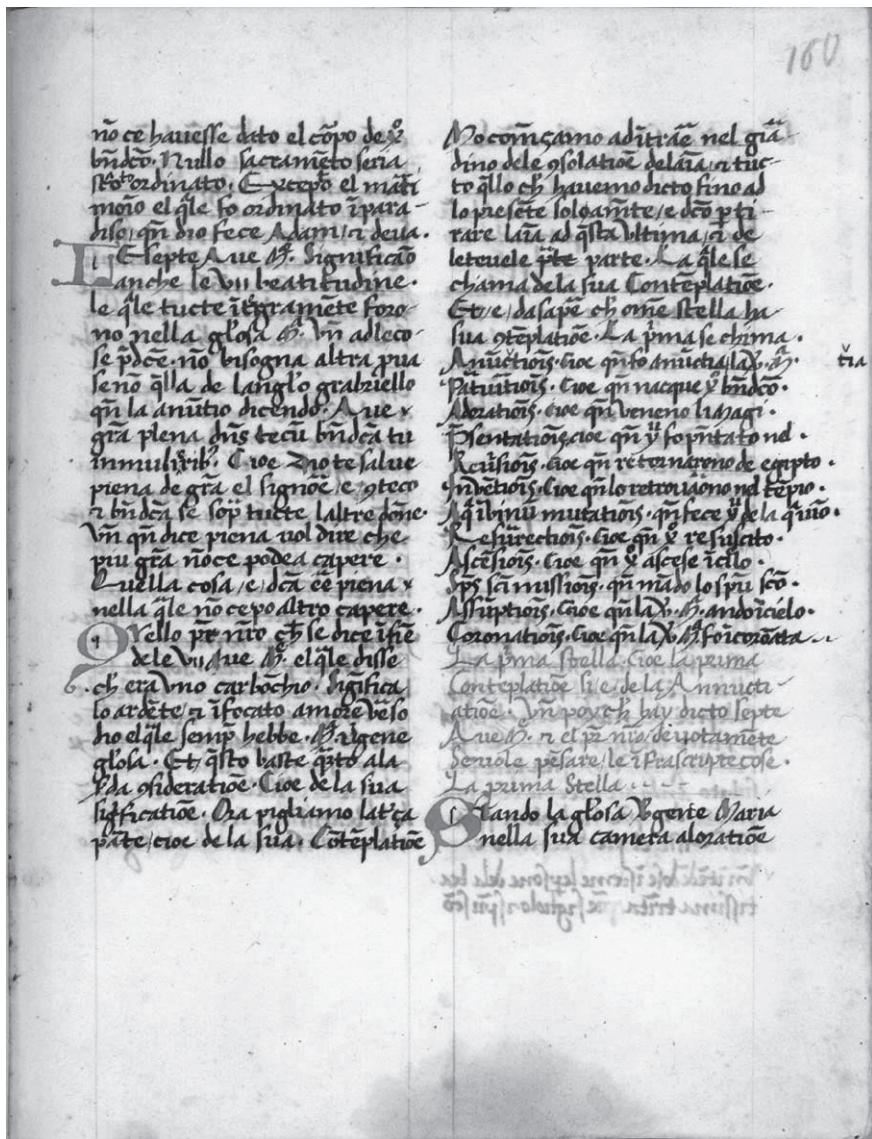 160
nō ce havesse dato el cōpo de xp̄o
bn̄dcō. Nullo sacramēto seria
ordinato. Excepto el mati
moīo el q̄le fo ordinato ī para-
diso, qn̄ dio fece Adam, et deva.
LE septe Ave M̄. Significāo
anche le vii beatitudine.
le q̄le tucte ītegramēte foro-
no nella gl̄osa M̄. Vn̄ ad leco-
se p̄dcē. nō bisogna altra pua
se nō q̄lla de langl̄o grabriello
qn̄ la anūtio dicendo. Ave
grā plena dn̄s tecū bn̄dcā tu
in mulierib3. Cioe Dio te salve
piena de grā el signōe, e, 9teco
et bn̄dcā se sop̄ tucte laltre dōne.
Vn̄ qn̄ dice piena vol dire che
piu grā nō ce podea capere.
Quella cosa, e, dcā eē piena
nella q̄le nō ce po altro capere.
Quello pr̄ nr̄o ch̄ se dice ī fīe
de le vii Ave M̄. el q̄le disse
6. ch̄ era vno carbōchio. Significa
lo ardēte, et ī focato amore v̄so
dio el q̄le semp̄ hebbe. M̄. v̄gene
gl̄osa. Et q̄sto baste q̄to ala
9sideratiōe. Cioe de la sua
significatiōe. Ora pigliamo la t'ça
pāte, cioe de la sua. Cōtēplatiōe
Mo comēçamo ad ītrāe nel giā-
dino dele 9solatiōe de laīa, et tuc-
to q̄llo ch̄ havemo dicto fino ad
lo presēte solo amēte, e dcō p̄ ti-
rare laīa ad q̄sta ultima, et de
letevele parte. La q̄le se
chiama dela sua Contēplatiōe.
Et, e, da sapē ch̄ om̄e stella ha
sua 9tēplatiōe. La p̄ma se chima.
Anūctiōis. Cioe qn̄ fo anūctia la v̄. M̄.
t'ia
Patuitiōis. Cioe qn̄ nacque xp̄o bn̄dcō.
Adoratiōis. Cioe qn̄ veneno li magi.
P̄sentatiōis, cioe qn̄ xp̄o fo p̄ntato nel.
Cioe qn̄ retornarono de egipto.
Invētiōis. Cioe qn̄ lo retrovarono nel tēpio.
Aq̄ ī binū mutatiōis. qn̄ fece xp̄o de la q̄ vīno.
Resurrectiōis. Cioe qn̄ xp̄o resuscito.
Ascēsiōis. Cioe qn̄ xp̄o ascese ī cl̄o.
Sp̄s scī missiōis. qn̄ mādo lo sp̄u scō.
Assūptiōis. Cioe qn̄ la v̄. M̄. ando ī cielo.
Coronatiōis. Cioe qn̄ la v̄. M̄ fo ī corōata.
La p̄ma stella. Cioe la prima
Contēplatiōe si e, de la Annucti-
atiōe. Vn̄ poy ch̄ hay dicto septe
Ave M̄. et el pr̄ nr̄o, devotamēte
se vole pēsare, le īfrascripte cose.
La prima Stella
Stando la gl̄osa v̄gene Maria
nella sua camera al oratiōe